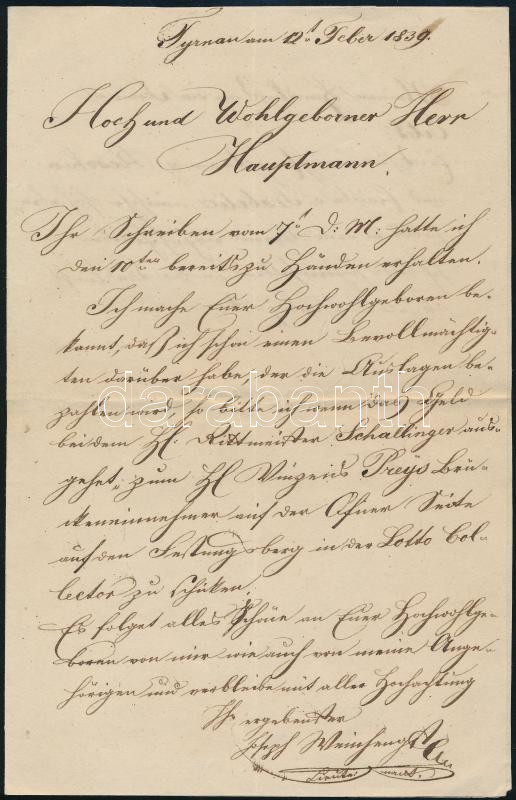 Tyrnau am 12t Feber 1839.
Hoch und Wohlgeborner Herr
Hauptmann.
Ihr Schreiben vom 7t D: M: hatte ich
den 10ten bereits zu Händen erhalten.
Ich mache Euer Hochwohlgeboren be-
kannt, daß ich schon einen Bevollmächtig-
ten darüber habe, der die Auslagen be-
zahlen wird, so bitte ich wenn das Geld
bei dem H: Rittmeister Schallinger aus-
gehet, zum Hl Vinzens Preys Brü-
ckeneinnehmer auf der Ofner Seite
auf den Festungsberg in der Lotto Col-
lector zu schicken.
Es folget alles Schöne an Euer Hochwohlge-
boren von mir wie auch von meine Ange-
hörigen und verbleibe mit aller Hochachtung
Ihr ergebenster
Joseph
darabanth